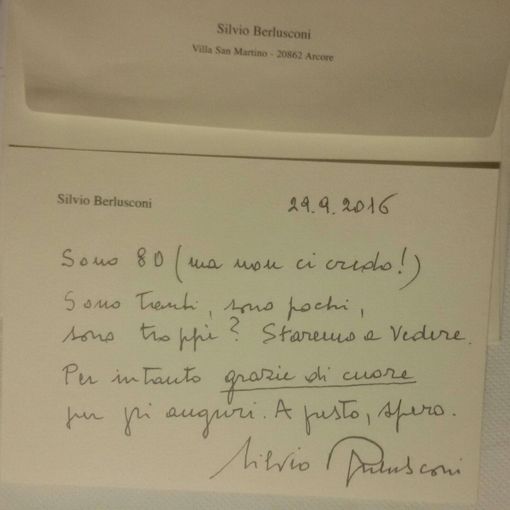 Silvio Berlusconi
Villa San Martino - 20862 Arcore
Silvio Berlusconi
29.9.2016
Sono 80 (ma non ci credo!)
Sono tanti, sono pochi,
sono troppi? Staremo a vedere.
Per intanto grazie di cuore
per gli auguri. A presto, spero.
Silvio Berlusconi